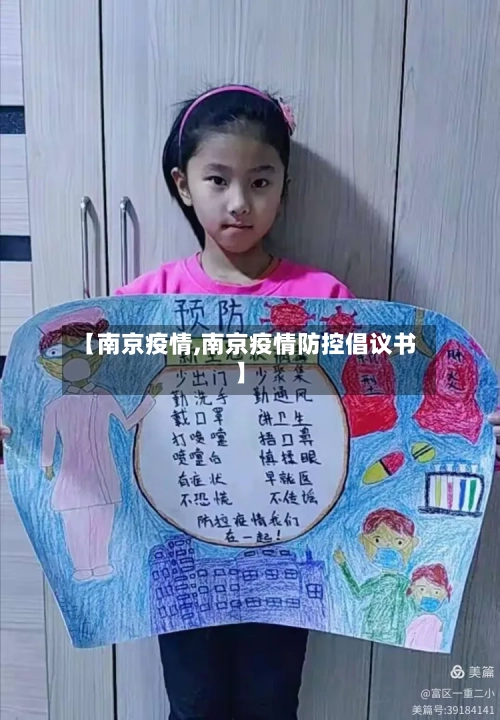 预防
【南京疫情,南京疫情防控倡议书
】
少出门 少聚集
勤洗手 勤通风
戴口罩 讲卫生
打喷嚏 捂口鼻
喷嚏后 慎揉眼
有症状 早就医
不恐慌 不传谣
防控疫情我们
在一起！
新型
肺炎
美篇
@富区一重二小
美篇号:39184141